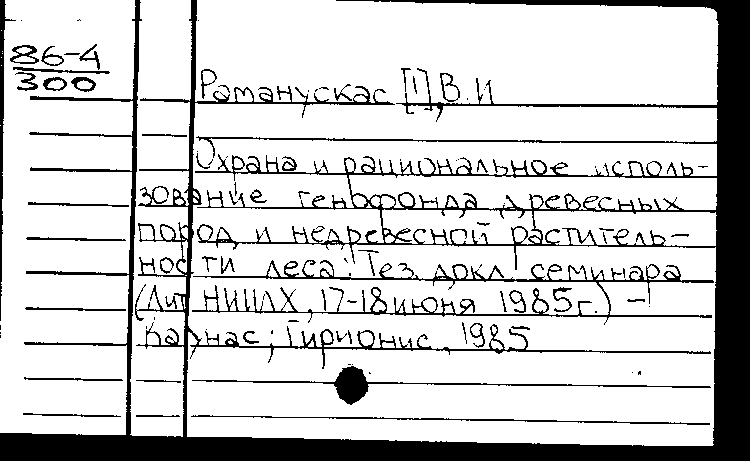 86-4
300
Раманускас [1], В. И
Охрана и рациональное исполь-
зование генофонда древесных
пород и недревесной раститель-
ности леса: Тез. докл. семинара
(Лит НИИЛХ, 17-18 июня 1985г.) -
Каунас; Гирионис, 1985